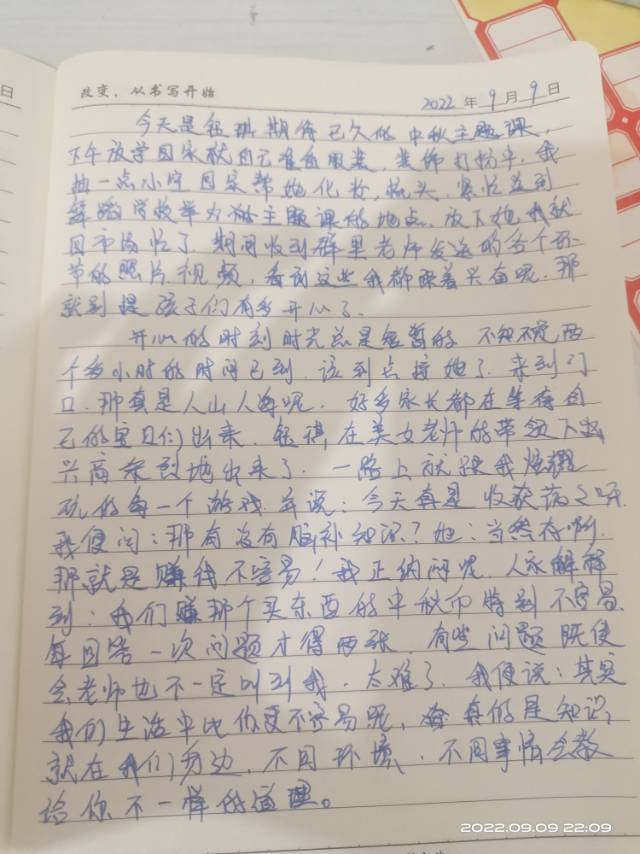 日
改变，从书写开始
2022年9月9日
今天是钰琪期待已久的中秋主题课，
下午放学回家就自己准备服装，装饰打扮中，我
抽一点小空回家帮她化妆，梳头，紧忙送到
学校举办主题课的地点，放下她我就
回市场忙了，期间收到群里老师发送的各个环
节的照片视频，看到这些我都跟着兴奋呢，那
就别提孩子们有多开心了。
开心的时刻时光总是短暂的，不知不觉两
个多小时的时间已到，该到点接她了，来到门
口，那真是人山人海呢，好多家长都在等待自
己的宝贝们出来，钰琪，在美女老师的带领下
兴高采烈地出来了，一路上就跟我炫耀
玩的每一个游戏，并说：今天真是收获满满呀，
我便问：那有没有脑补知识？她：当然有啊，
那就是赚钱不容易！我正纳闷呢，人家解释
到：我们赚那个买东西的中秋币特别不容易，
每回答一次问题才得两张，有些问题既使
会老师也不一定叫到我，太难了，我便说：其实
我们生活中比你更不容易呢，真的是知识
就在我们身边，不同环境，不同事情会教
给你不一样的道理。
2022.09.09 22:09